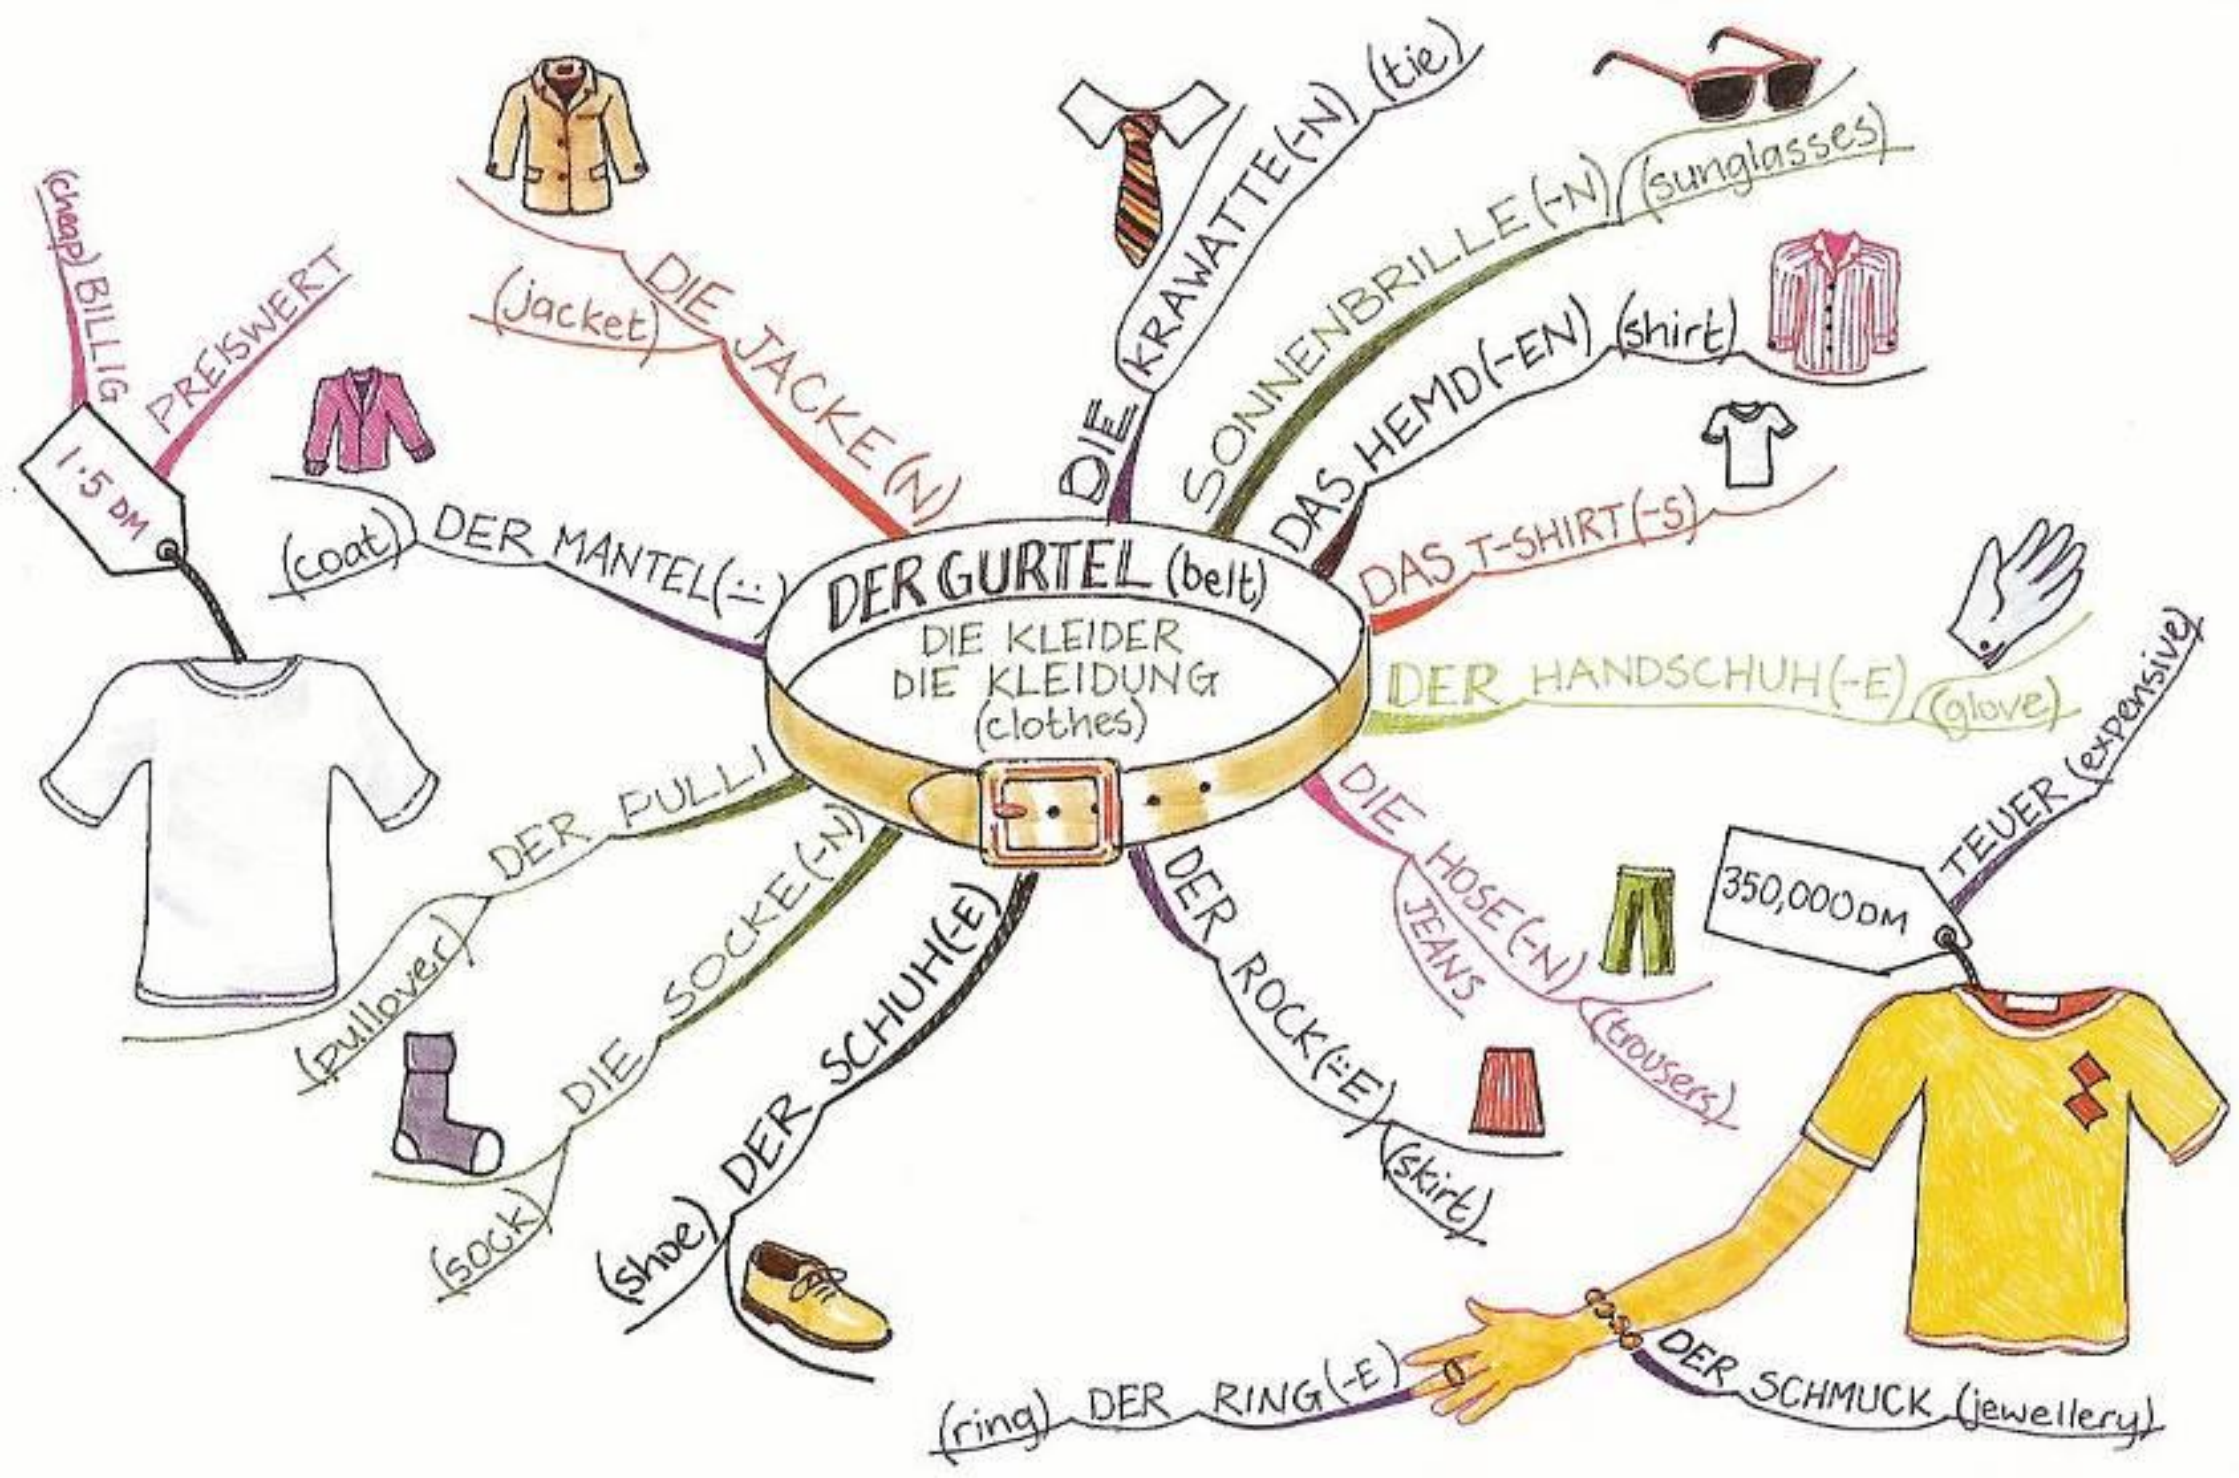 DER GURTEL (belt)
DIE KLEIDER
DIE KLEIDUNG
(clothes)
DIE KRAWATTE (-N) (tie)
SONNENBRILLE (-N) (sunglasses)
DAS HEMD (-EN) (shirt)
DAS T-SHIRT (-S)
DER HANDSCHUH (-E) (glove)
DIE HOSE (-N) (trousers)
JEANS
DER ROCK (¨E) (skirt)
DER SCHUH (-E) (shoe)
DIE SOCKE (-N) (sock)
DER PULLI (pullover)
DER MANTEL (¨) (coat)
DIE JACKE (N) (jacket)
(cheap) BILLIG
PREISWERT
1.5 DM
TEUER (expensive)
350,000 DM
DER SCHMUCK (jewellery)
(ring) DER RING (-E)